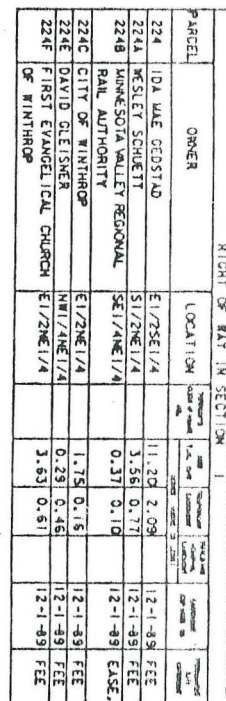 RIGHT OF WAY IN SECTION 1
PARCEL OWNER LOCATION
224 IDA MAE GEDSTAD E1/2SE1/4 11.20 2.09 12-1-89 FEE
224A WESLEY SCHUETT S1/2NE1/4 3.56 0.77 12-1-89 FEE
224B MINNESOTA VALLEY REGIONAL SE1/4NE1/4 0.37 0.10 12-1-89 EASE.
RAIL AUTHORITY
224C CITY OF WINTHROP E1/2NE1/4 1.75 0.16 12-1-89 FEE
224E DAVID GLEISNER NW1/4NE1/4 0.29 0.46 12-1-89 FEE
224F FIRST EVANGELICAL CHURCH E1/2NE1/4 3.63 0.61 12-1-89 FEE
OF WINTHROP